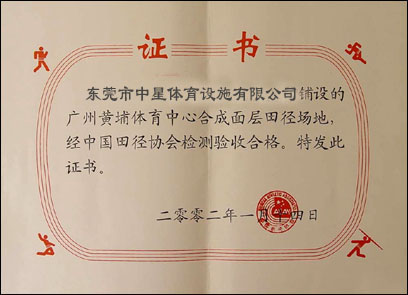 证书
东莞市中星体育设施有限公司铺设的
广州黄埔体育中心合成面层田径场地，
经中国田径协会检测验收合格。特发此
证书。
二零零二年一月 十四日